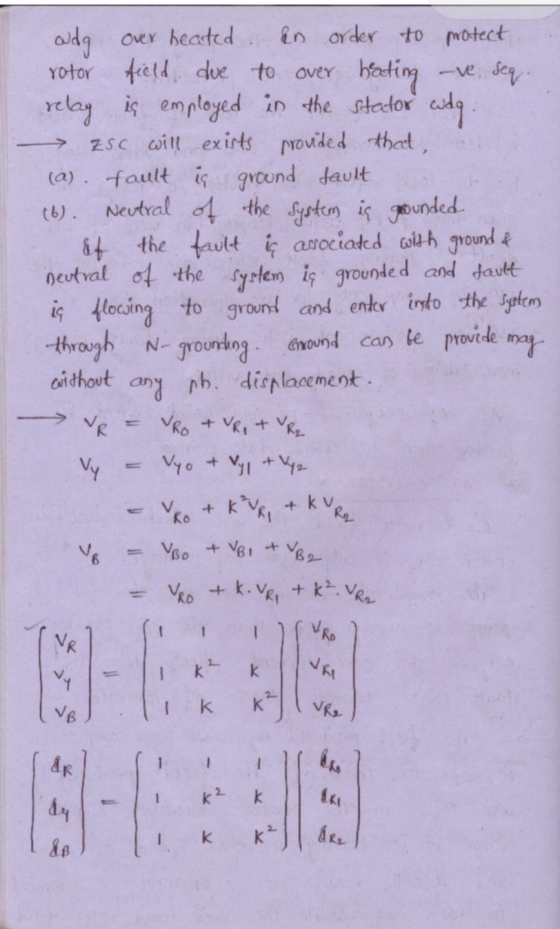 wdg over heated. In order to protect
rotor field due to over heating -ve seq.
relay is employed in the stator wdg.
→ ZSC will exists provided that,
(a). fault is ground fault
(b). Neutral of the system is grounded.
If the fault is associated with ground &
neutral of the system is grounded and fault
is flowing to ground and enter into the system
through N-grounding. Ground can be provide mag
without any ph. displacement.
→ V_R = V_R0 + V_R1 + V_R2
V_Y = V_Y0 + V_Y1 + V_Y2
= V_R0 + K²V_R1 + K V_R2
V_B = V_B0 + V_B1 + V_B2
= V_R0 + K. V_R1 + K². V_R2
[V_R] [1 1 1] [V_R0]
[V_Y] = [1 K² K] [V_R1]
[V_B] [1 K K²] [V_R2]
[I_R] [1 1 1] [I_R0]
[I_Y] = [1 K² K] [I_R1]
[I_B] [1 K K²] [I_R2]